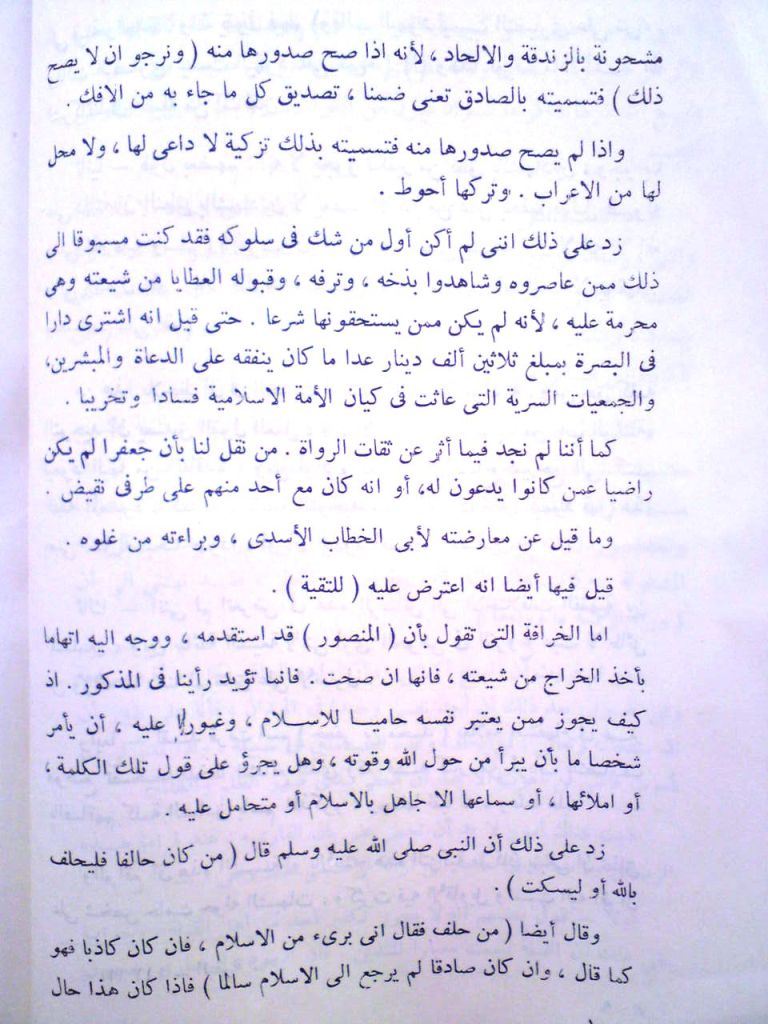 مشحونة بالزندقة والالحاد ، لأنه اذا صح صدورها منه ( ونرجو ان لا يصح
ذلك ) فتسميته بالصادق تعنى ضمنا ، تصديق كل ما جاء به من الافك .
واذا لم يصح صدورها منه فتسميته بذلك تزكية لا داعى لها ، ولا محل
لها من الاعراب . وتركها أحوط .
زد على ذلك اننى لم أكن أول من شك فى سلوكه فقد كنت مسبوقا الى
ذلك ممن عاصروه وشاهدوا بذخه ، وترفه ، وقبوله العطايا من شيعته وهى
محرمة عليه ، لأنه لم يكن ممن يستحقونها شرعا . حتى قيل انه اشترى دارا
فى البصرة بمبلغ ثلاثين ألف دينار عدا ما كان ينفقه على الدعاة والمبشرين،
والجمعيات السرية التى عاثت فى كيان الأمة الاسلامية فسادا وتخريبا .
كما أننا لم نجد فيما أثر عن ثقات الرواة . من نقل لنا بأن جعفرا لم يكن
راضيا عمن كانوا يدعون له، أو انه كان مع أحد منهم على طرفى نقيض .
وما قيل عن معارضته لأبى الخطاب الأسدى ، وبراءته من غلوه .
قيل فيها أيضا انه اعترض عليه ( للتقية ) .
اما الخرافة التى تقول بأن ( المنصور ) قد استقدمه ، ووجه اليه اتهاما
بأخذ الخراج من شيعته ، فانها ان صحت . فانما تؤيد رأينا فى المذكور . اذ
كيف يجوز ممن يعتبر نفسه حاميا للاسلام ، وغيورا عليه ، أن يأمر
شخصا ما بأن يبرأ من حول الله وقوته ، وهل يجرؤ على قول تلك الكلمة ،
أو املائها ، أو سماعها الا جاهل بالاسلام أو متحامل عليه .
زد على ذلك أن النبى صلى الله عليه وسلم قال ( من كان حالفا فليحلف
بالله أو ليسكت ) .
وقال أيضا ( من حلف فقال انى برىء من الاسلام ، فان كان كاذبا فهو
كما قال ، وان كان صادقا لم يرجع الى الاسلام سالما ) فاذا كان هذا حال